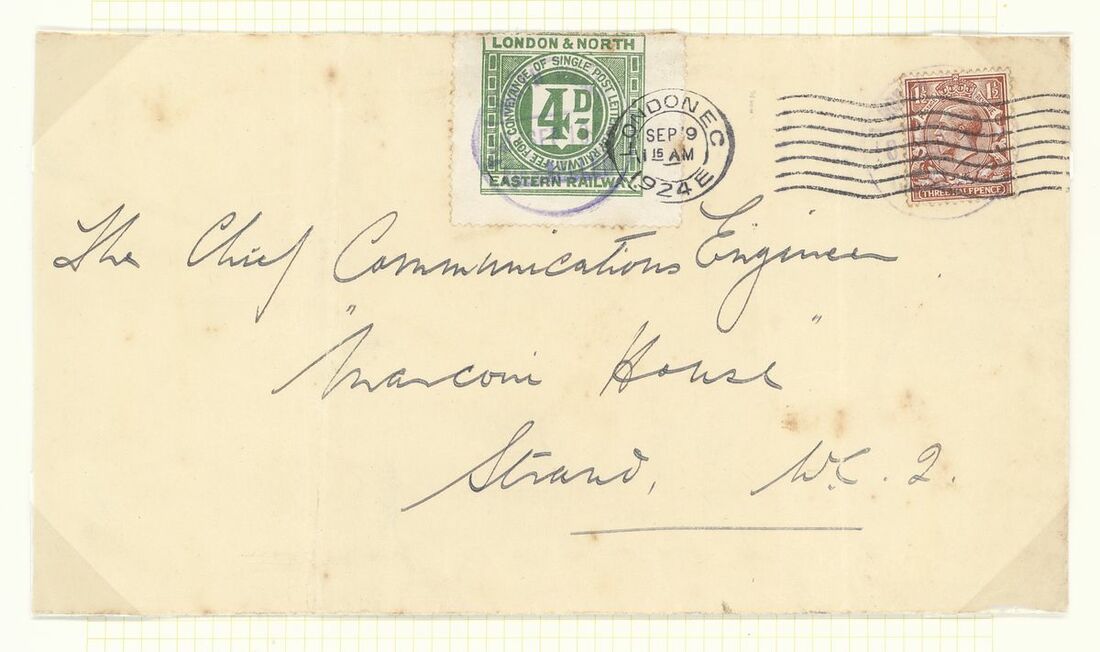 LONDON & NORTH
FEE FOR CONVEYANCE OF SINGLE POST LETTERS BY RAILWAY
4D
EASTERN RAILWAY
LONDON E.C.
SEP 9
1 15 AM
1924
E
1½ 1½
THREE HALFPENCE
The Chief Communications Engineer
"Marconi House"
Strand, W.C. 2.